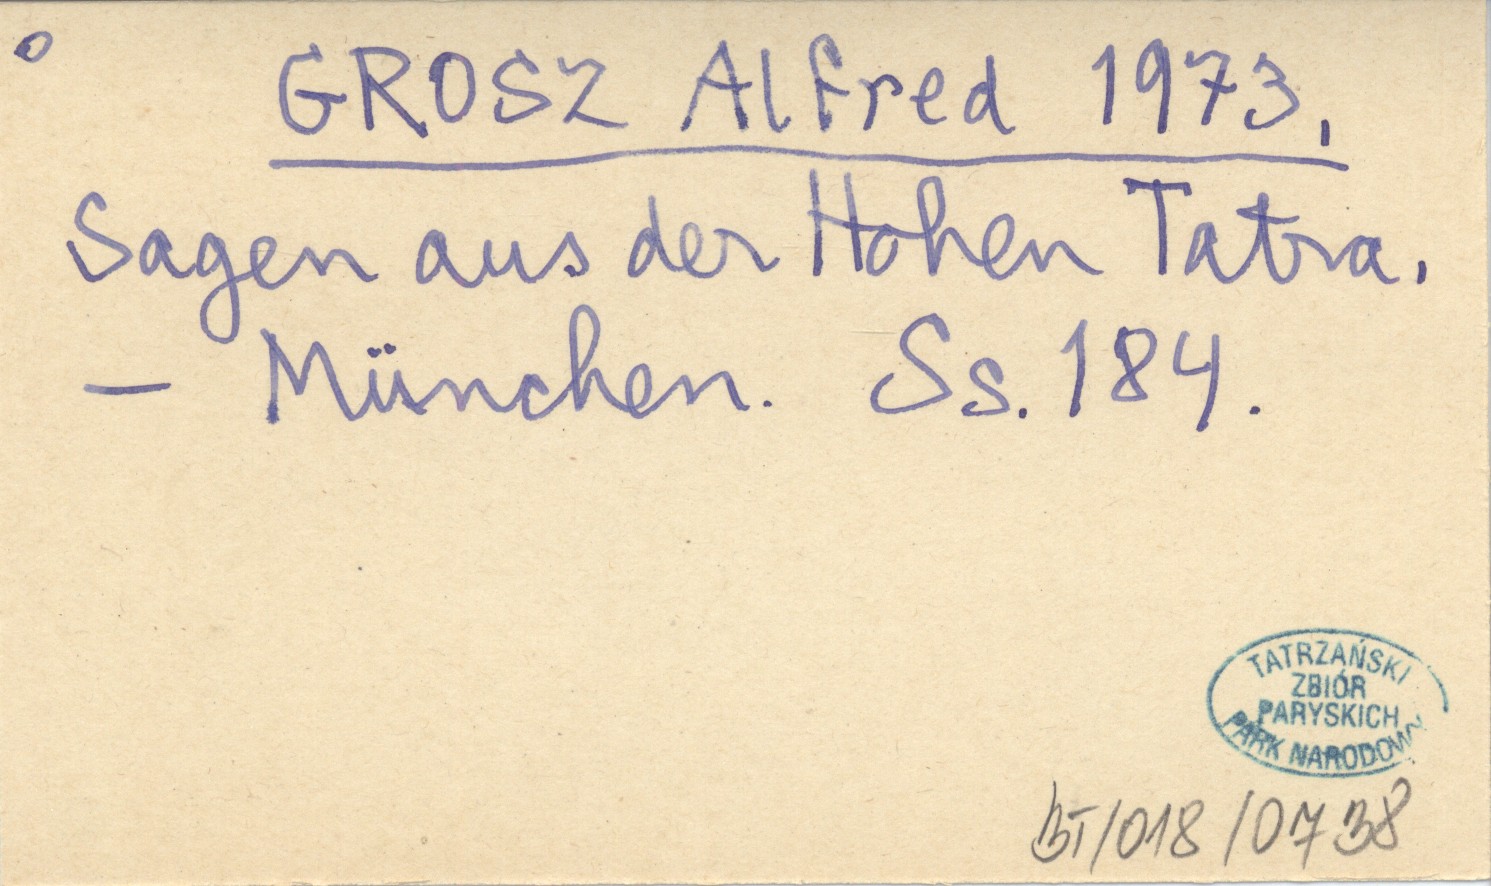 ° GROSZ Alfred 1973.
Sagen aus der Hohen Tatra.
– München. Ss. 184.
TATRZAŃSKI
ZBIÓR
PARYSKICH
PARK NARODOWY
BT/018/0738